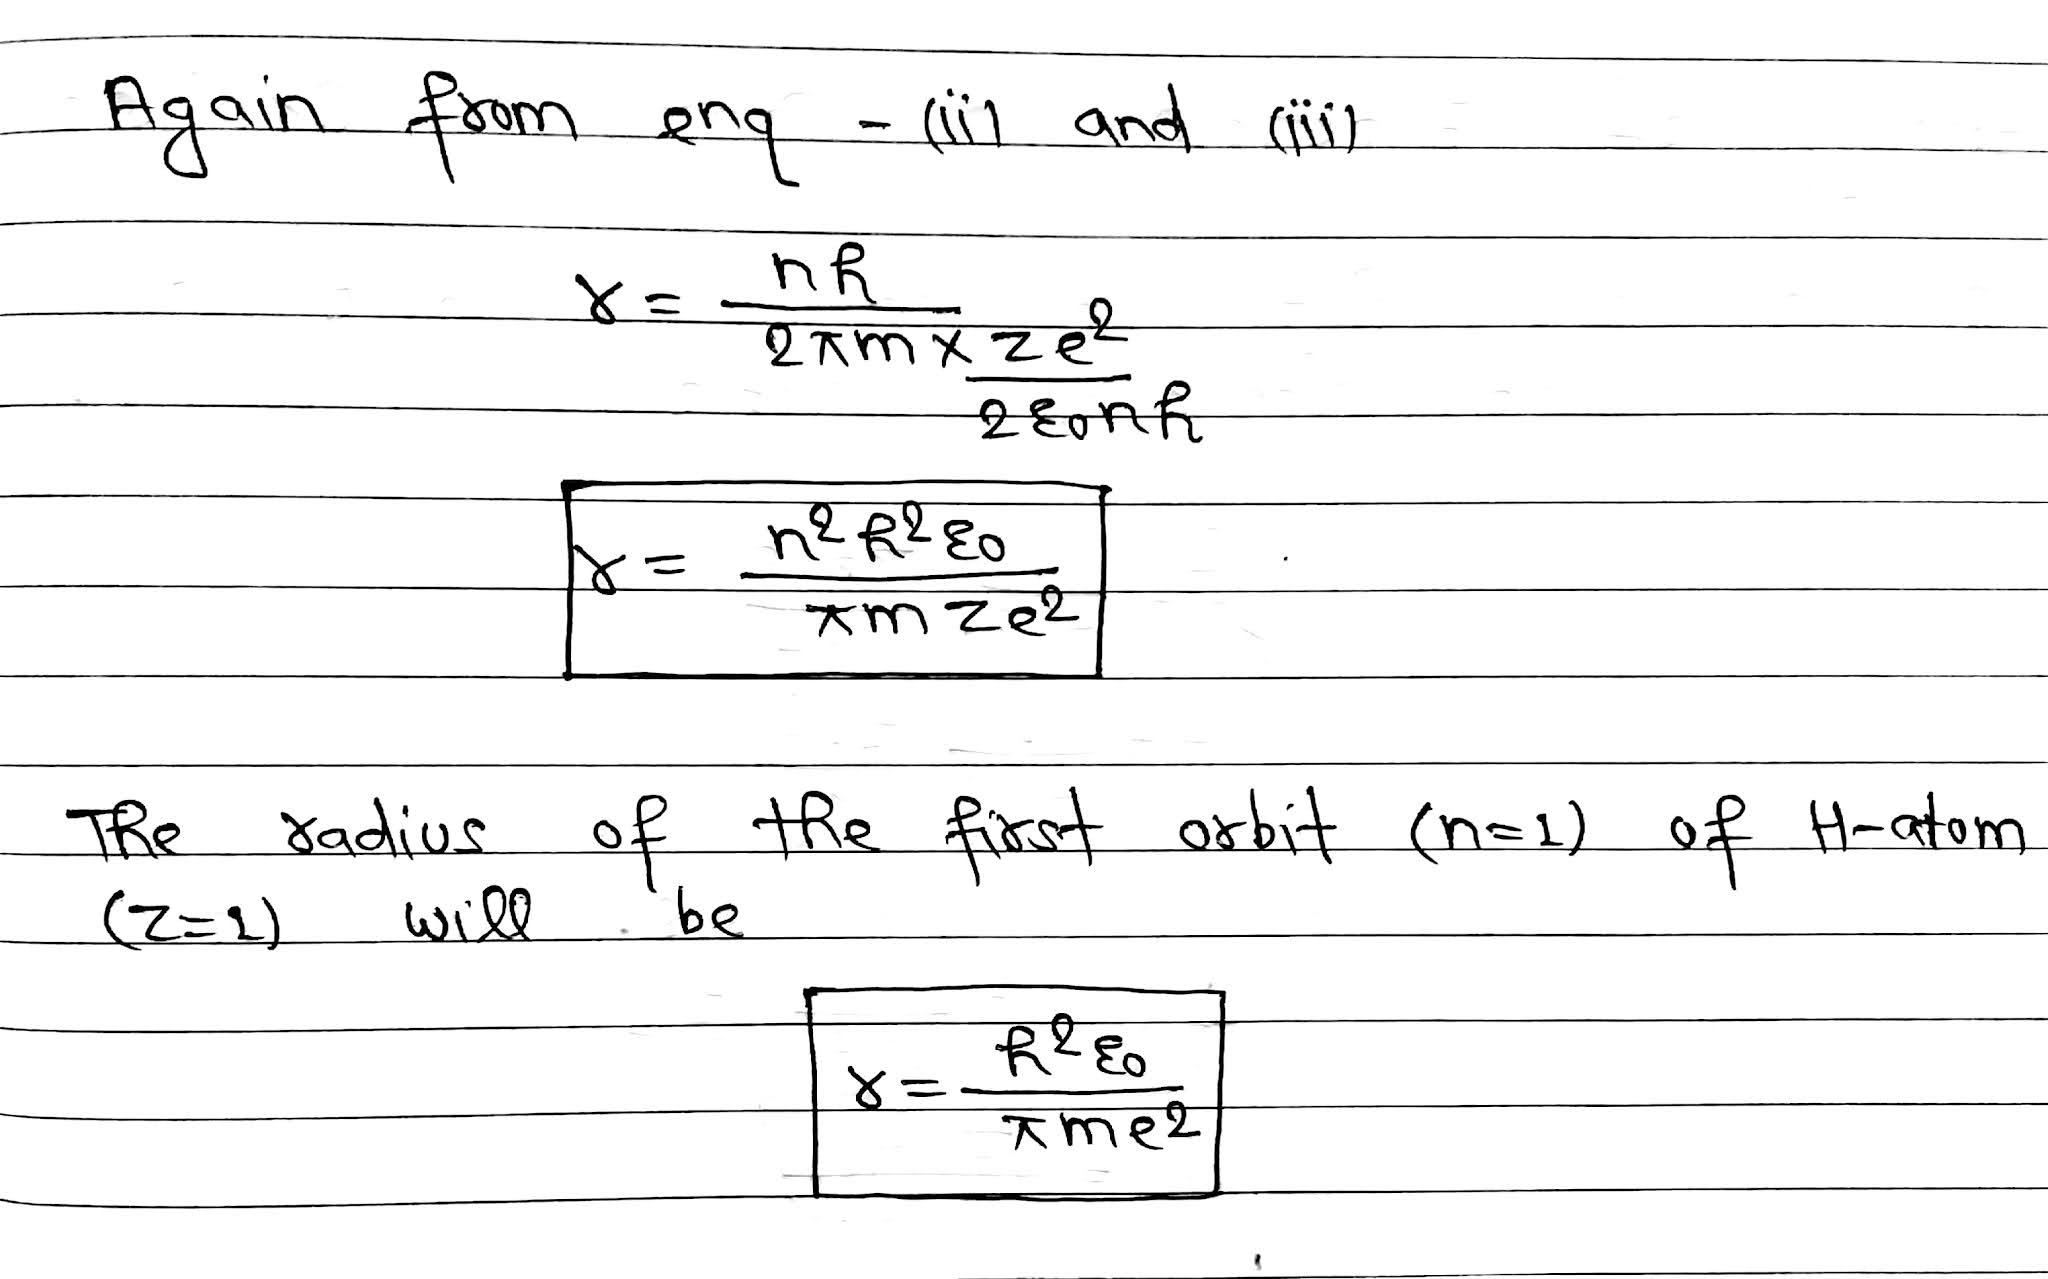 Again from enq - (ii) and (iii)
r = nh / 2πm × ze² / 2ε₀nh
r = n²h²ε₀ / πmze²
The radius of the first orbit (n=1) of H-atom
(z=1) will be
r = h²ε₀ / πme²